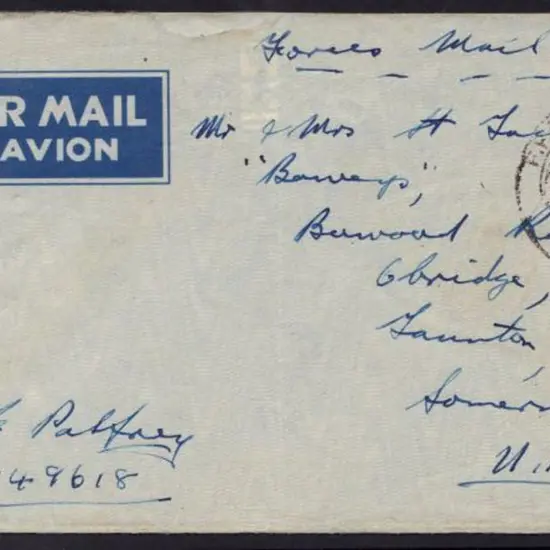 R MAIL
AVION
Forces Mail
Mr & Mrs H
"Boweys",
Burwood
Obridge,
Taunton
Somer
U.
Palfrey
49618